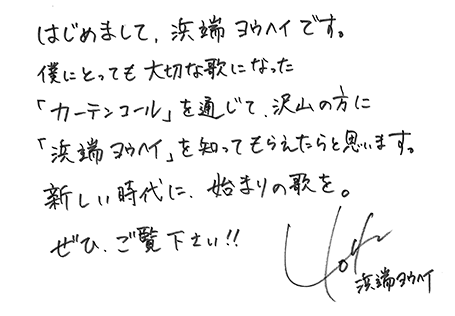 はじめまして、浜端ヨウヘイです。
僕にとっても大切な歌になった
「カーテンコール」を通じて、沢山の方に
「浜端ヨウヘイ」を知ってもらえたらと思います。
新しい時代に、始まりの歌を。
ぜひ、ご覧下さい!!
浜端ヨウヘイ